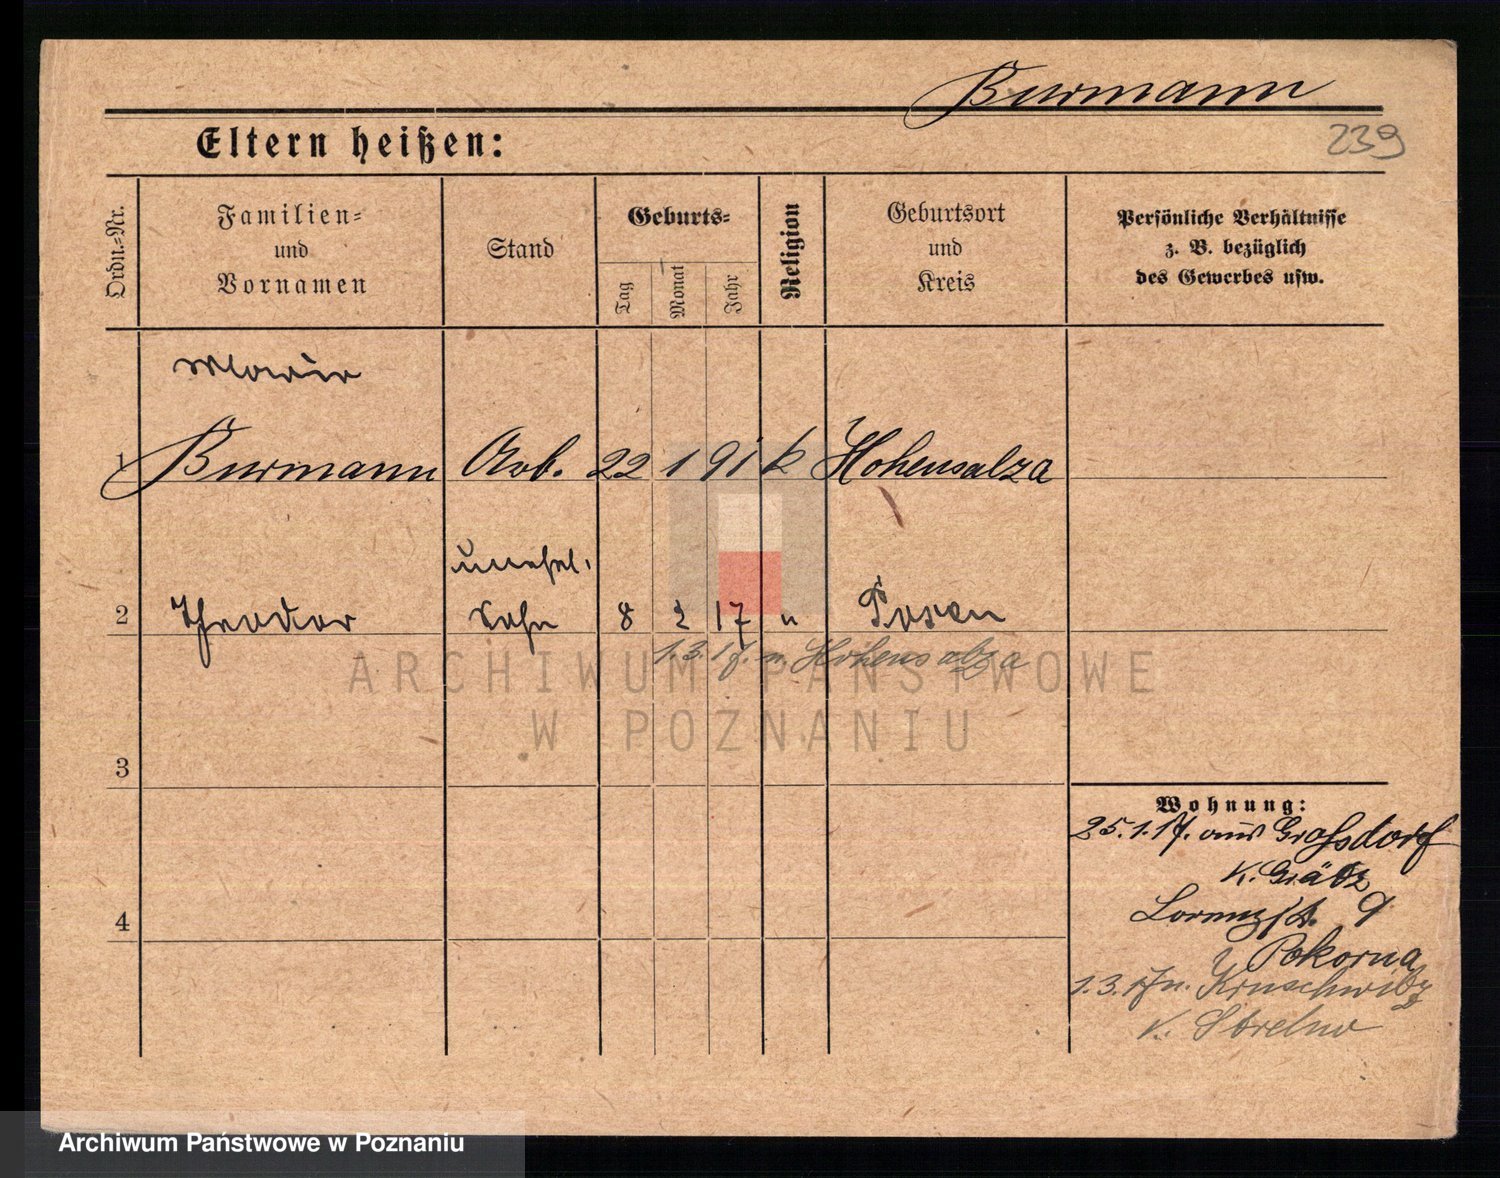 Burmann
Eltern heißen:
239
Ordn.=Nr.
Familien=
und
Vornamen
Stand
Geburts=
Tag
Monat
Jahr
Religion
Geburtsort
und
Kreis
Persönliche Verhältnisse
z. B. bezüglich
des Gewerbes usw.
Maria
1 Burmann Arb. 22 1 91 k Hohensalza
unehel.
2 Theodor Sohn 8 2 17 " Posen
1.3.17. n. Hohensalza
3
4
Wohnung:
25.1.17. aus Großdorf
K. Grätz
Lorenzstr. 9
Pokorna
1.3.17 n. Kruschwitz
K. Strelno
ARCHIWUM PAŃSTWOWE
W POZNANIU
Archiwum Państwowe w Poznaniu